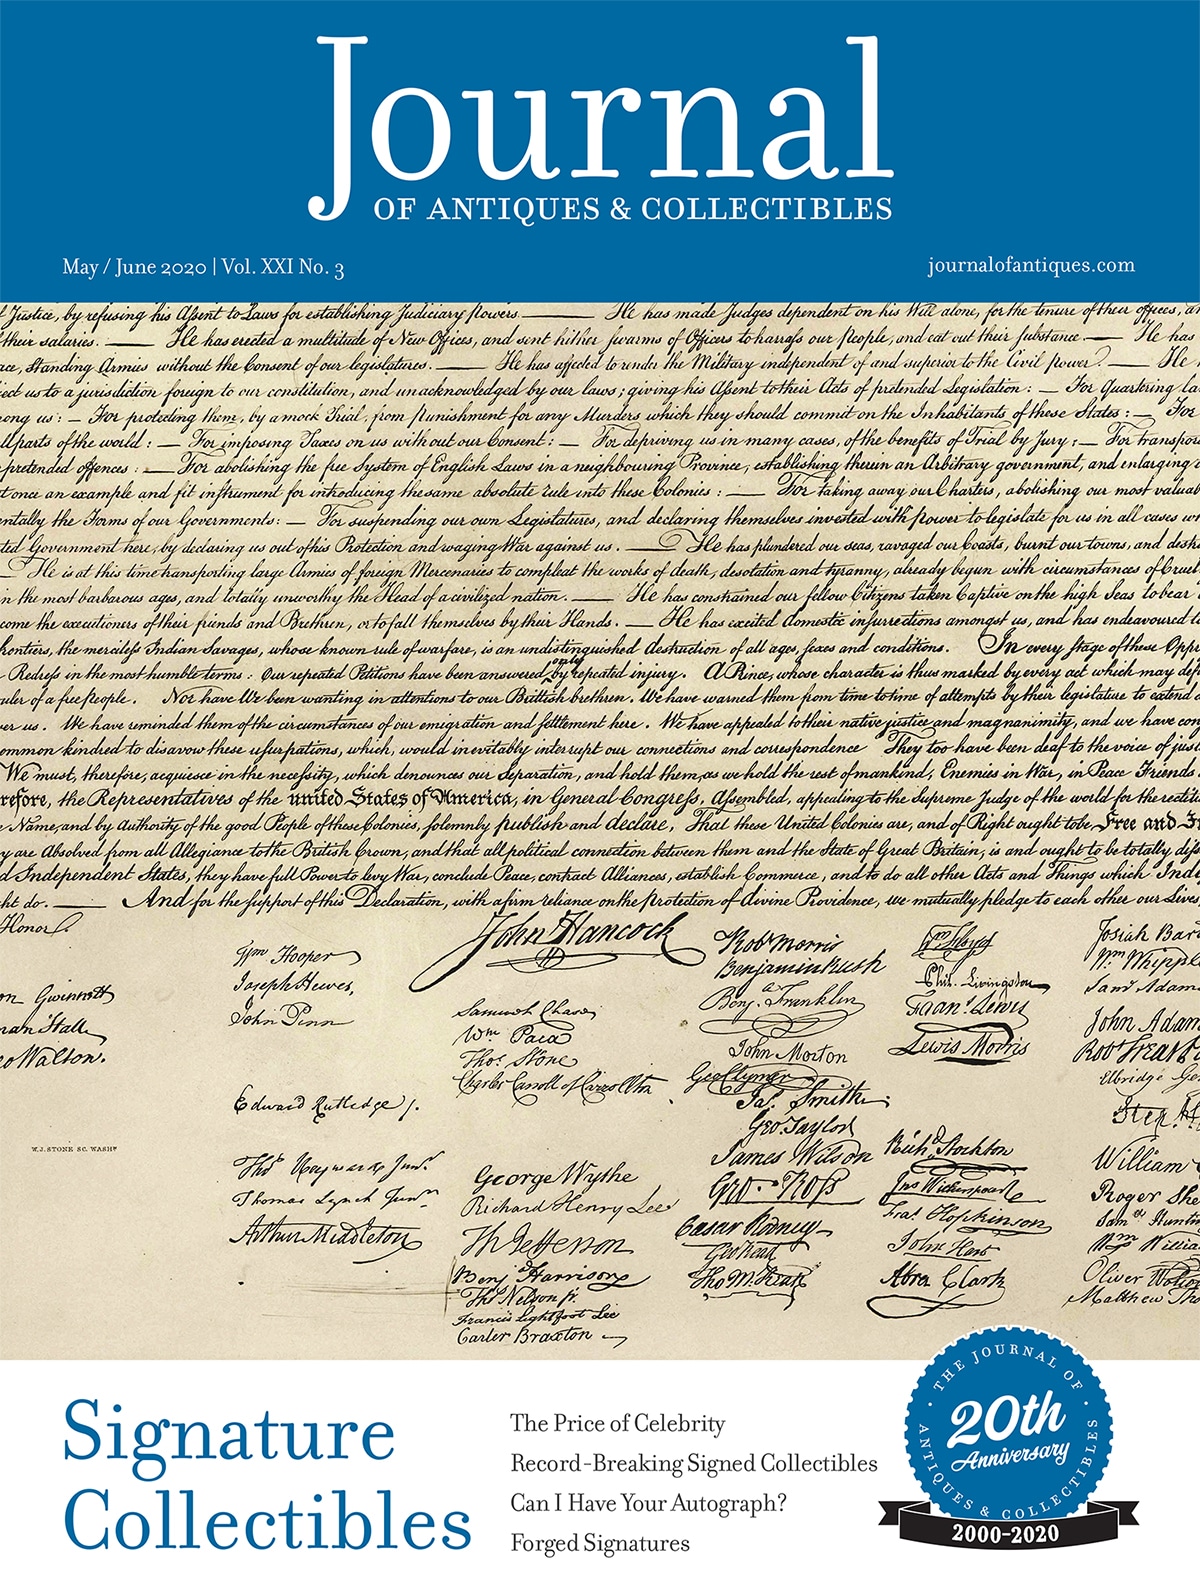 Journal
OF ANTIQUES & COLLECTIBLES
May / June 2020 | Vol. XXI No. 3
journalofantiques.com
Justice, by refusing his Assent to Laws for establishing Judiciary powers. —— He has made Judges dependent on his Will alone, for the tenure of their offices,
their salaries. —— He has erected a multitude of New Offices, and sent hither swarms of Officers to harrass our People, and eat out their substance. — He has
Standing Armies without the Consent of our legislatures. —— He has affected to render the Military independent of and superior to the Civil power. — He
us to a jurisdiction foreign to our constitution, and unacknowledged by our laws; giving his Assent to their Acts of pretended Legislation: — For Quartering
us: — For protecting them, by a mock Trial, from punishment for any Murders which they should commit on the Inhabitants of these States: — For
parts of the world: — For imposing Taxes on us without our Consent: — For depriving us in many cases, of the benefits of Trial by Jury: — For
pretended offences: — For abolishing the free System of English Laws in a neighbouring Province, establishing therein an Arbitrary government, and enlarging
once an example and fit instrument for introducing the same absolute rule into these Colonies: — For taking away our Charters, abolishing our most
the Forms of our Governments: — For suspending our own Legislatures, and declaring themselves invested with power to legislate for us in all cases
Government here, by declaring us out of his Protection and waging War against us. — He has plundered our seas, ravaged our Coasts, burnt our towns, and
— He is at this time transporting large Armies of foreign Mercenaries to compleat the works of death, desolation and tyranny, already begun with circumstances of
in the most barbarous ages, and totally unworthy the Head of a civilized nation. — He has constrained our fellow Citizens taken Captive on the high Seas to bear
come the executioners of their friends and Brethren, or to fall themselves by their Hands. — He has excited domestic insurrections amongst us, and has endeavoured
the merciless Indian Savages, whose known rule of warfare, is an undistinguished destruction of all ages, sexes and conditions. In every stage of these
Redress in the most humble terms: Our repeated Petitions have been answered only by repeated injury. A Prince, whose character is thus marked by every act which may
of a free people. Nor have We been wanting in attentions to our Brittish brethren. We have warned them from time to time of attempts by their legislature to extend
us. We have reminded them of the circumstances of our emigration and settlement here. We have appealed to their native justice and magnanimity, and we have
kindred to disavow these usurpations, which, would inevitably interrupt our connections and correspondence They too have been deaf to the voice of
We must, therefore, acquiesce in the necessity, which denounces our Separation, and hold them, as we hold the rest of mankind, Enemies in War, in Peace Friends
the Representatives of the united States of America, in General Congress, Assembled, appealing to the Supreme Judge of the world for the
Name, and by Authority of the good People of these Colonies, solemnly publish and declare, That these United Colonies are, and of Right ought to be Free and
are Absolved from all Allegiance to the British Crown, and that all political connection between them and the State of Great Britain, is and ought to be totally
Independent States, they have full Power to levy War, conclude Peace, contract Alliances, establish Commerce, and to do all other Acts and Things which
do. —— And for the support of this Declaration, with a firm reliance on the Protection of divine Providence, we mutually pledge to each other our Lives,
Honor.
Gwinnett
Hall
Walton.
W. J. STONE SC. WASHN
Wm Hooper
Joseph Hewes,
John Penn
Edward Rutledge /.
Thos Heyward Junr.
Thomas Lynch Junr
Arthur Middleton
John Hancock
Samuel Chase
Wm Paca
Thos Stone
Charles Carroll of Carrollton
George Wythe
Richard Henry Lee
Th Jefferson
Benj Harrison
Thos Nelson jr.
Francis Lightfoot Lee
Carter Braxton
Robt Morris
Benjamin Rush
Benj. Franklin
John Morton
Geo Clymer
Jas. Smith
Geo. Taylor
James Wilson
Geo. Ross
Caesar Rodney
Geo Read
Tho M:Kean
Wm Floyd
Phil. Livingston
Frans. Lewis
Lewis Morris
Richd. Stockton
Jno Witherspoon
Fras. Hopkinson
John Hart
Abra Clark
Josiah
Wm Whipple
Saml
John
Robt Treat
Elbridge
William
Roger
Saml
Wm
Oliver
Matthew
Signature
Collectibles
The Price of Celebrity
Record-Breaking Signed Collectibles
Can I Have Your Autograph?
Forged Signatures
THE JOURNAL OF
20th
Anniversary
ANTIQUES & COLLECTIBLES
2000-2020